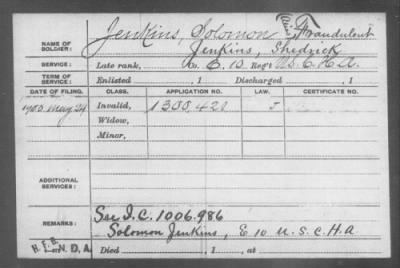 Jenkins, Solomon Fraudulent
NAME OF SOLDIER: Jenkins, Shedrick
SERVICE: Late rank, Co. E. 10 Reg't U.S.C.H.A.
TERM OF SERVICE: Enlisted , 1 Discharged , 1
DATE OF FILING. CLASS. APPLICATION NO. LAW. CERTIFICATE NO.
1900 May 24 Invalid, 1300,420 J
Widow,
Minor,
ADDITIONAL SERVICES:
See I.C. 1006.986
REMARKS: Solomon Jenkins, E 10 U.S.C.H.A
N.D.A. Died , 1 , at